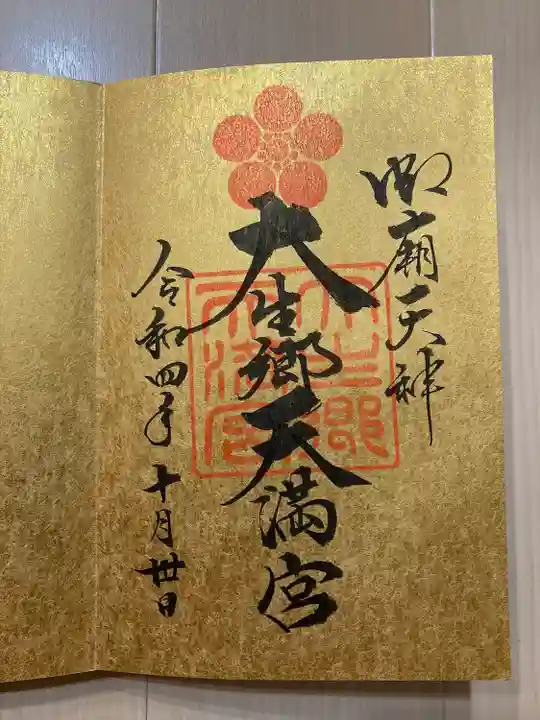 御廟天神
大生郷天満宮
令和四年十月丗日